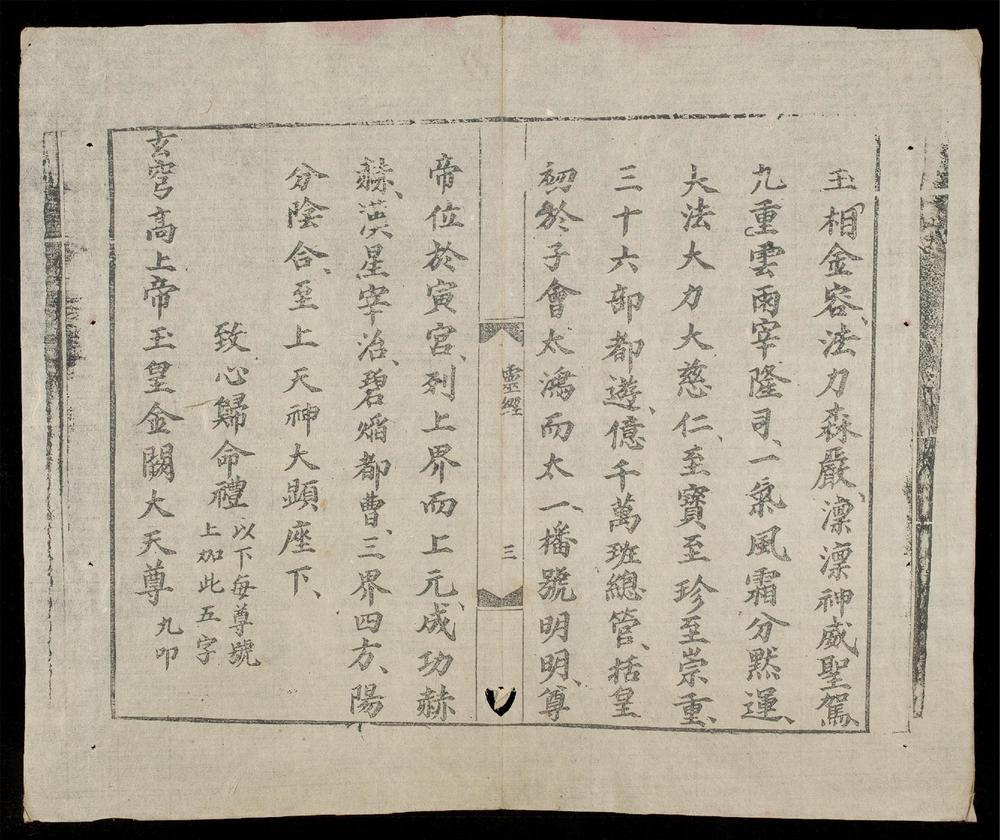 玉相金容、法力森嚴、凛凛神威聖駕
九重雲雨宰隆司、一氣風霜分黙運、
大法大力大慈仁、至寶至珍至崇重、
三十六部都遊、億千萬班總管、括皇
初於子會太鴻而太一、播號明明、尊
靈經
三
帝位於寅宮、列上界而上元、成功赫
赫、漢星宰治、碧㷔都曹、三界四方、陽
分陰合、至上天神大顕座下、
致心歸命禮 以下每尊號
上如此五字
玄穹高上帝玉皇金闕大天尊 九叩